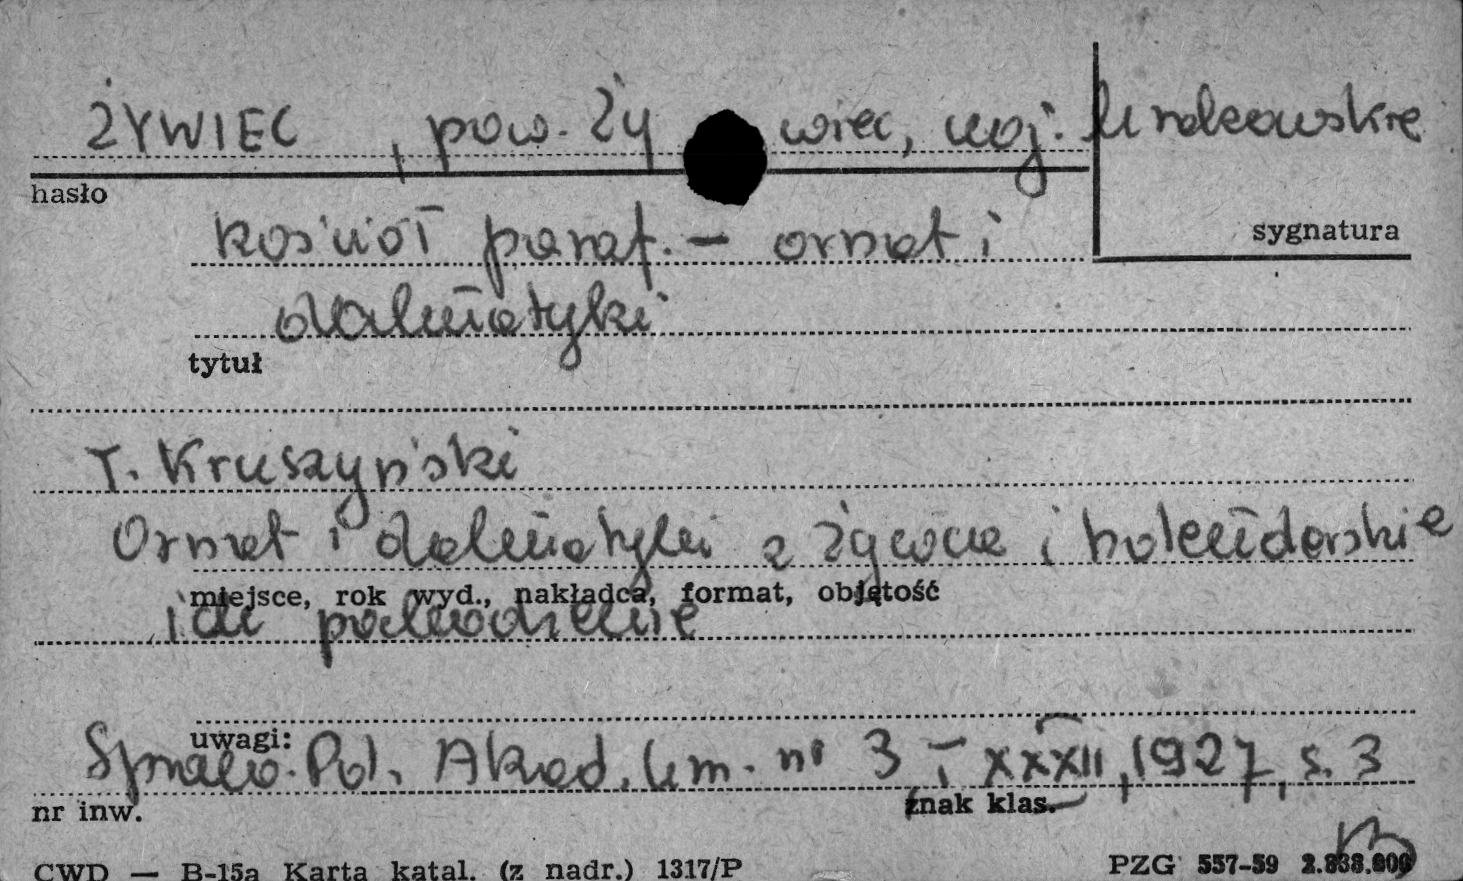 ŻYWIEC, pow. Żywiec, woj. krakowskie
hasło
kościół paraf. – ornat i
sygnatura
dalmatyki
tytuł
T. Kruszyński
Ornat i dalmatyki z Żywca i holenderskie
miejsce, rok wyd., nakładca, format, objętość
ich pochodzenie
uwagi:
Spraw. Pol. Akad. Um. nr 3 T XXXII, 1927, s. 3
nr inw.
znak klas.
CWD — B-15a Karta katal. (z nadr.) 1317/P
PZG 557-59 2.838.000